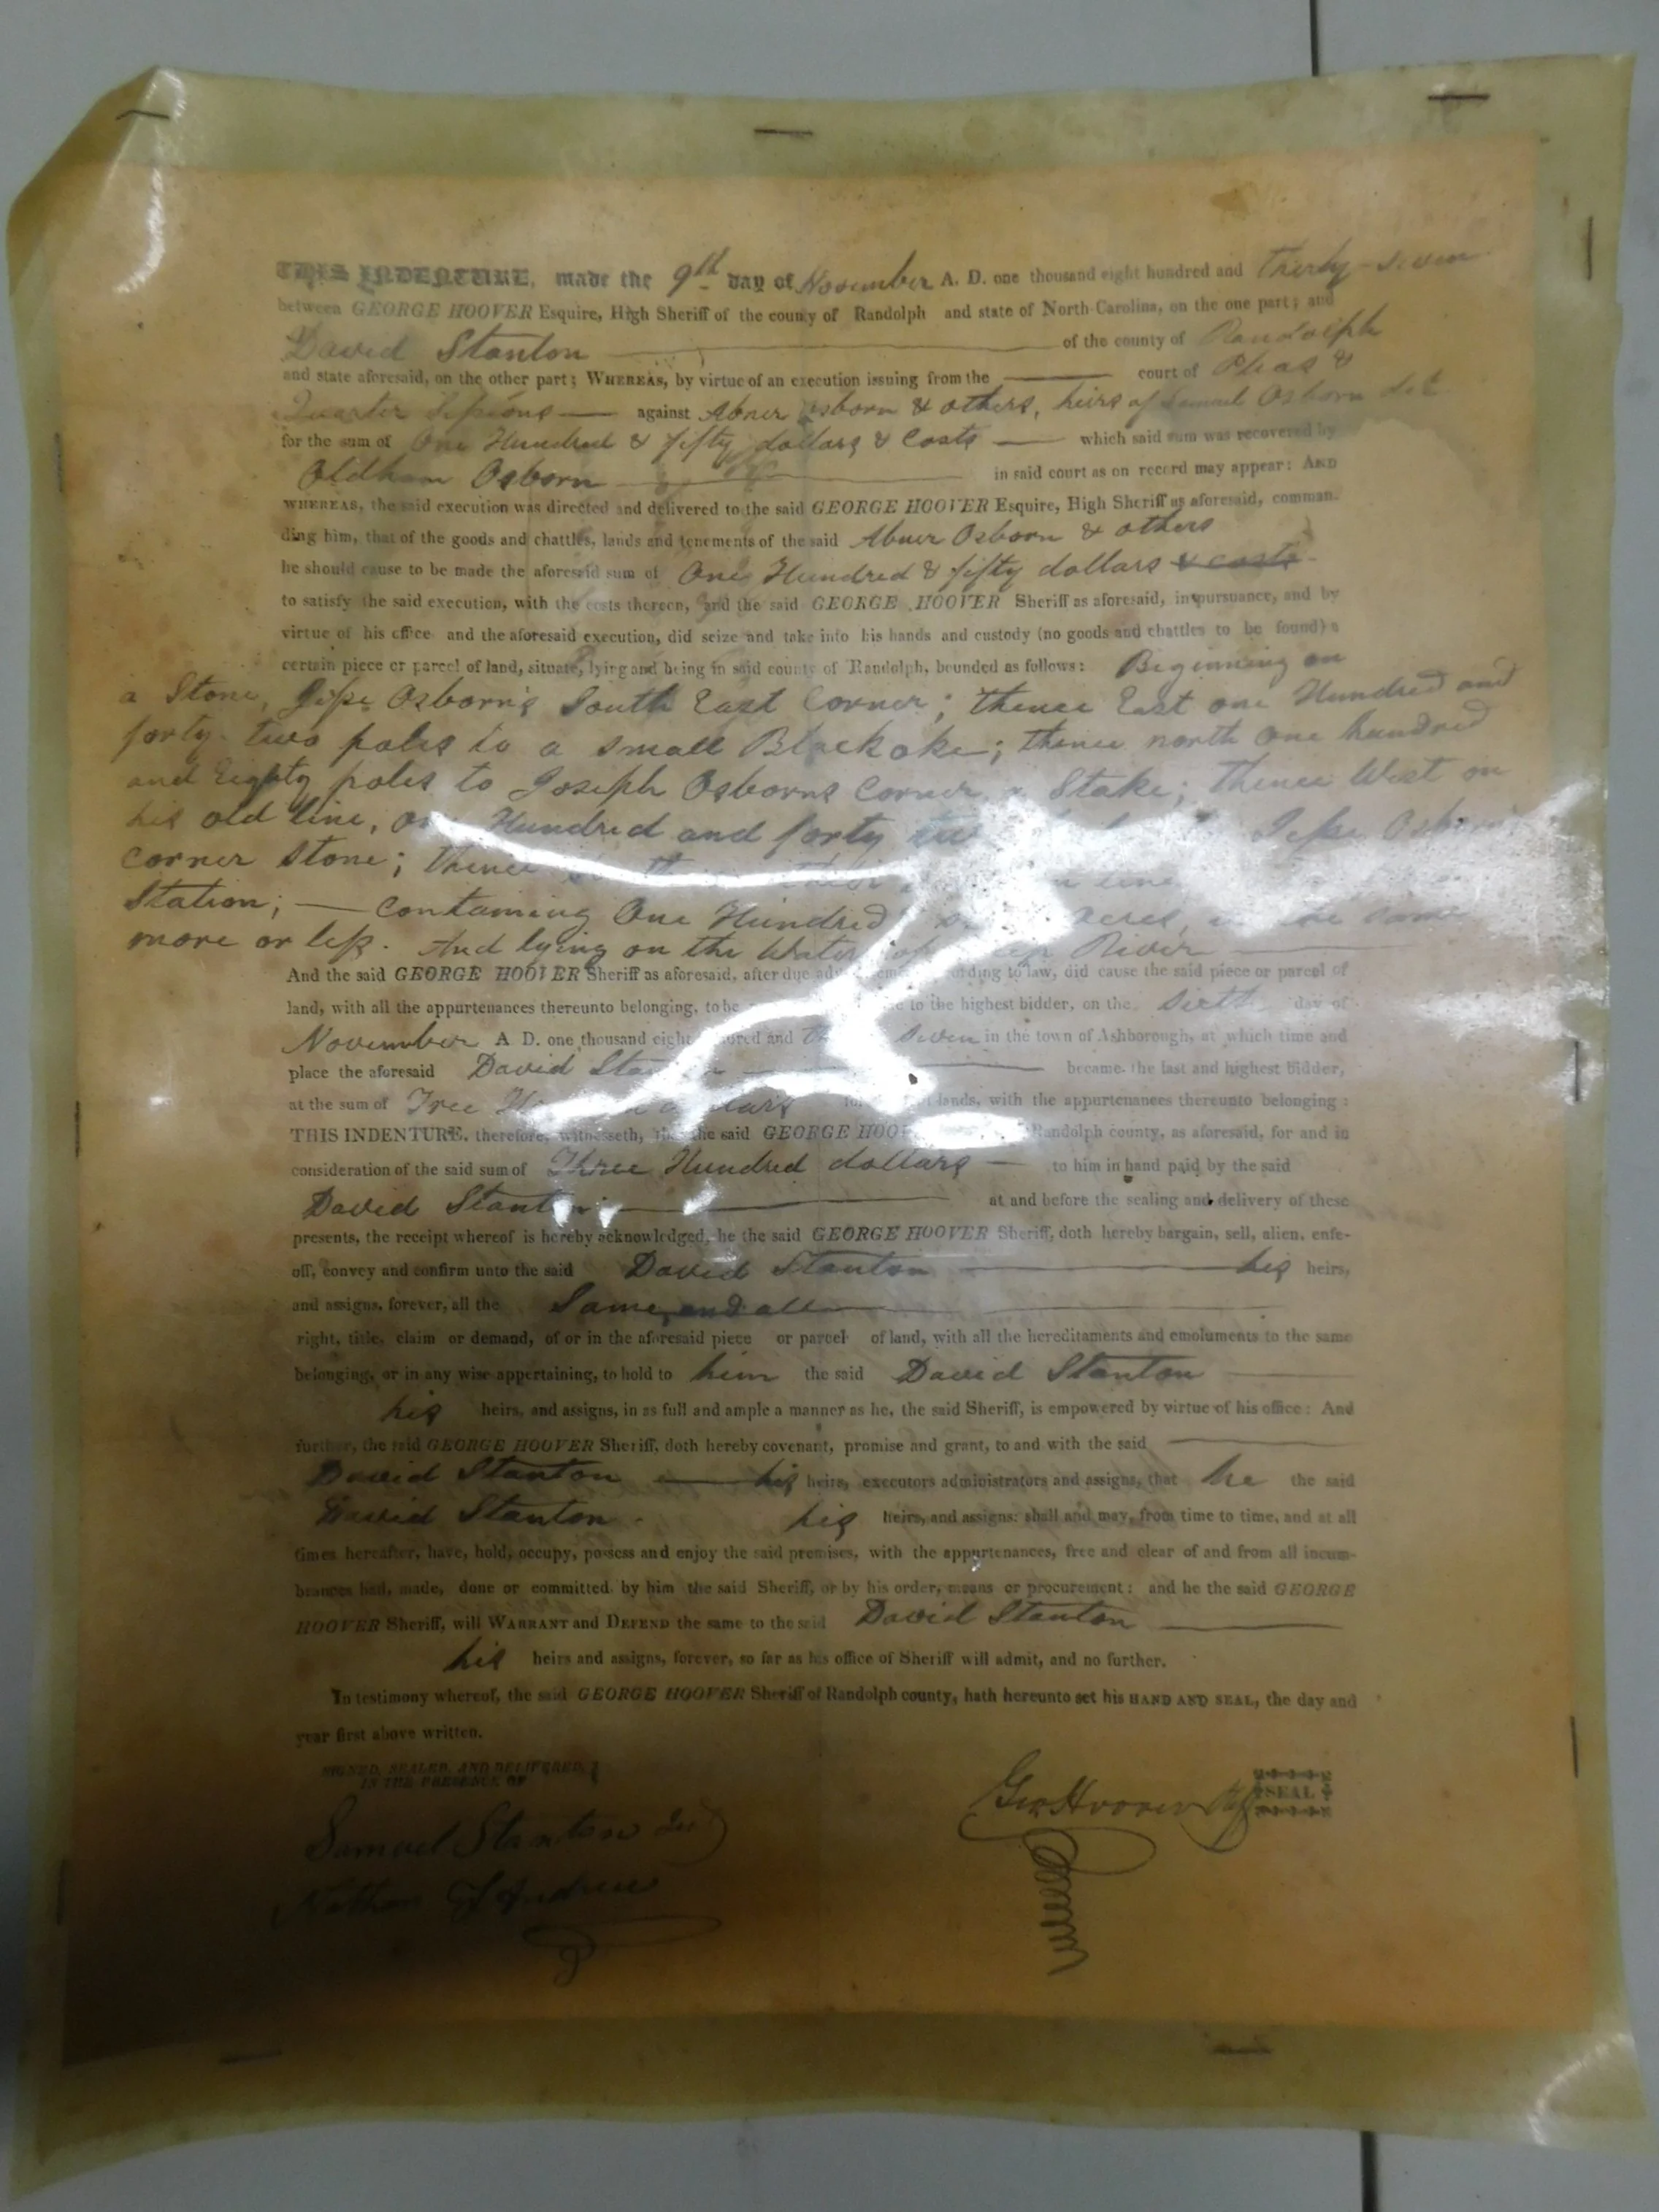 THIS INDENTURE, made the 9th day of November A. D. one thousand eight hundred and Thirty-seven
between GEORGE HOOVER Esquire, High Sheriff of the county of Randolph and state of North-Carolina, on the one part; and
David Stanton of the county of Randolph
and state aforesaid, on the other part; WHEREAS, by virtue of an execution issuing from the court of Pleas &
Quarter Sessions against Abner Osborn & others, heirs of Samuel Osborn
for the sum of One Hundred & fifty dollars & Costs which said sum was recovered by
Oldham Osborn in said court as on record may appear: AND
WHEREAS, the said execution was directed and delivered to the said GEORGE HOOVER Esquire, High Sheriff as aforesaid, comman-
ding him, that of the goods and chattles, lands and tenements of the said Abner Osborn & others
he should cause to be made the aforesaid sum of One Hundred & fifty dollars & costs
to satisfy the said execution, with the costs thereon, and the said GEORGE HOOVER Sheriff as aforesaid, in pursuance, and by
virtue of his office and the aforesaid execution, did seize and take into his hands and custody (no goods and chattles to be found) a
certain piece or parcel of land, situate, lying and being in said county of Randolph, bounded as follows: Beginning on
a Stone, Jesse Osborn's South East Corner; thence East one Hundred and
forty-two poles to a small Blackoke; thence north one hundred
and Eighty poles to Joseph Osborns Corner a Stake; thence West on
his old line, one Hundred and forty two Jesse Osborn's
corner Stone; thence line
Station; — containing One Hundred acres, same
more or less. And lying on the Waters of River
And the said GEORGE HOOVER Sheriff as aforesaid, after due according to law, did cause the said piece or parcel of
land, with all the appurtenances thereunto belonging, to be to the highest bidder, on the Sixth day of
November A D. one thousand eight hundred and seven in the town of Ashborough, at which time and
place the aforesaid David Stanton became the last and highest bidder,
at the sum of Tree Hundred dollars lands, with the appurtenances thereunto belonging:
THIS INDENTURE, therefore, witnesseth, that the said GEORGE HOOVER Randolph county, as aforesaid, for and in
consideration of the said sum of Three Hundred dollars to him in hand paid by the said
David Stanton at and before the sealing and delivery of these
presents, the receipt whereof is hereby acknowledged, he the said GEORGE HOOVER Sheriff, doth hereby bargain, sell, alien, enfe-
off, convey and confirm unto the said David Stanton his heirs,
and assigns, forever, all the Same, and all
right, title, claim or demand, of or in the aforesaid piece or parcel of land, with all the hereditaments and emoluments to the same
belonging, or in any wise appertaining, to hold to him the said David Stanton
his heirs, and assigns, in as full and ample a manner as he, the said Sheriff, is empowered by virtue of his office: And
further, the said GEORGE HOOVER Sheriff, doth hereby covenant, promise and grant, to and with the said
David Stanton his heirs, executors administrators and assigns, that he the said
David Stanton his heirs, and assigns: shall and may, from time to time, and at all
times hereafter, have, hold, occupy, possess and enjoy the said premises, with the appurtenances, free and clear of and from all incum-
brances had, made, done or committed by him the said Sheriff, or by his order, means or procurement: and he the said GEORGE
HOOVER Sheriff, will WARRANT and DEFEND the same to the said David Stanton
his heirs and assigns, forever, so far as his office of Sheriff will admit, and no further.
In testimony whereof, the said GEORGE HOOVER Sheriff of Randolph county, hath hereunto set his HAND AND SEAL, the day and
year first above written.
SIGNED, SEALED, AND DELIVERED,
IN THE PRESENCE OF
Geo Hoover SEAL
Samuel Stanton
Nathan